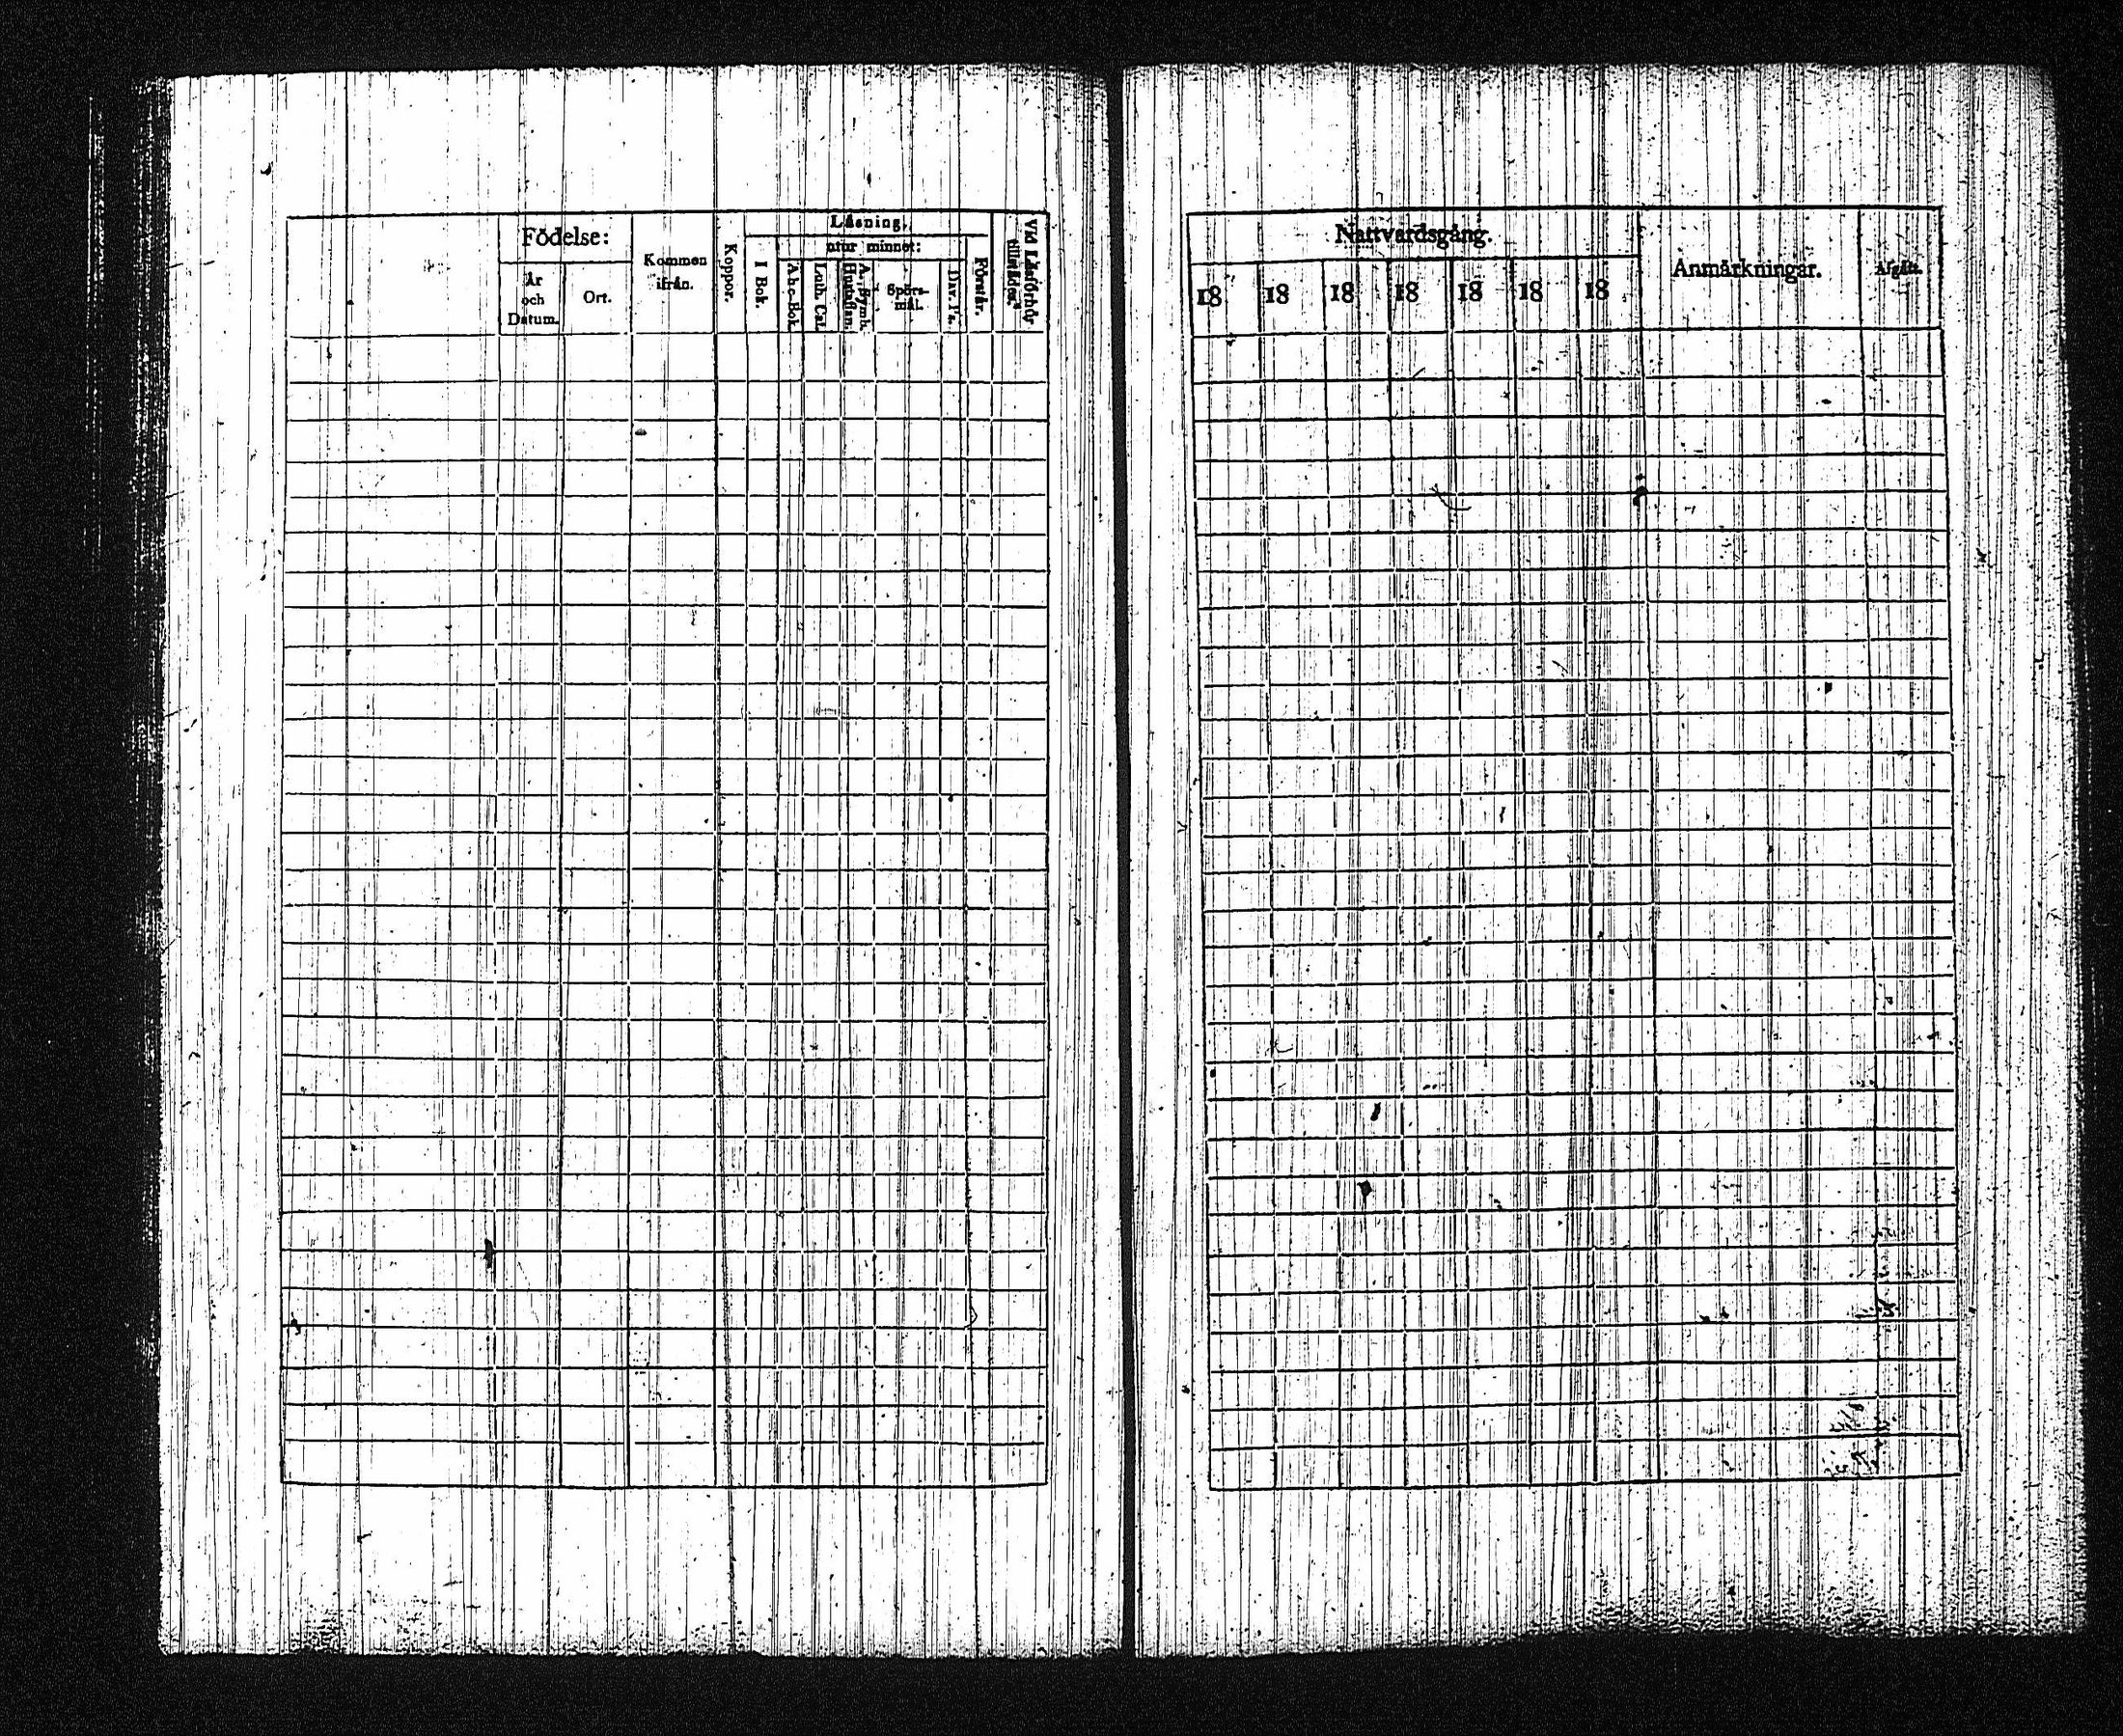 Födelse:
År
och
Datum.
Ort.
Kommen
ifrån.
Koppor.
Läsning,
utur minnet:
I Bok.
A b c-Bok.
Luth. Cat.
A. Symb.
Hustaflan.
Spörs-
mål.
Dav. Ps.
Förstår.
Vid Läsförhör
tillstädes.
Nattvardsgång.
18 18 18 18 18 18 18
Anmärkningar.
Afgått.